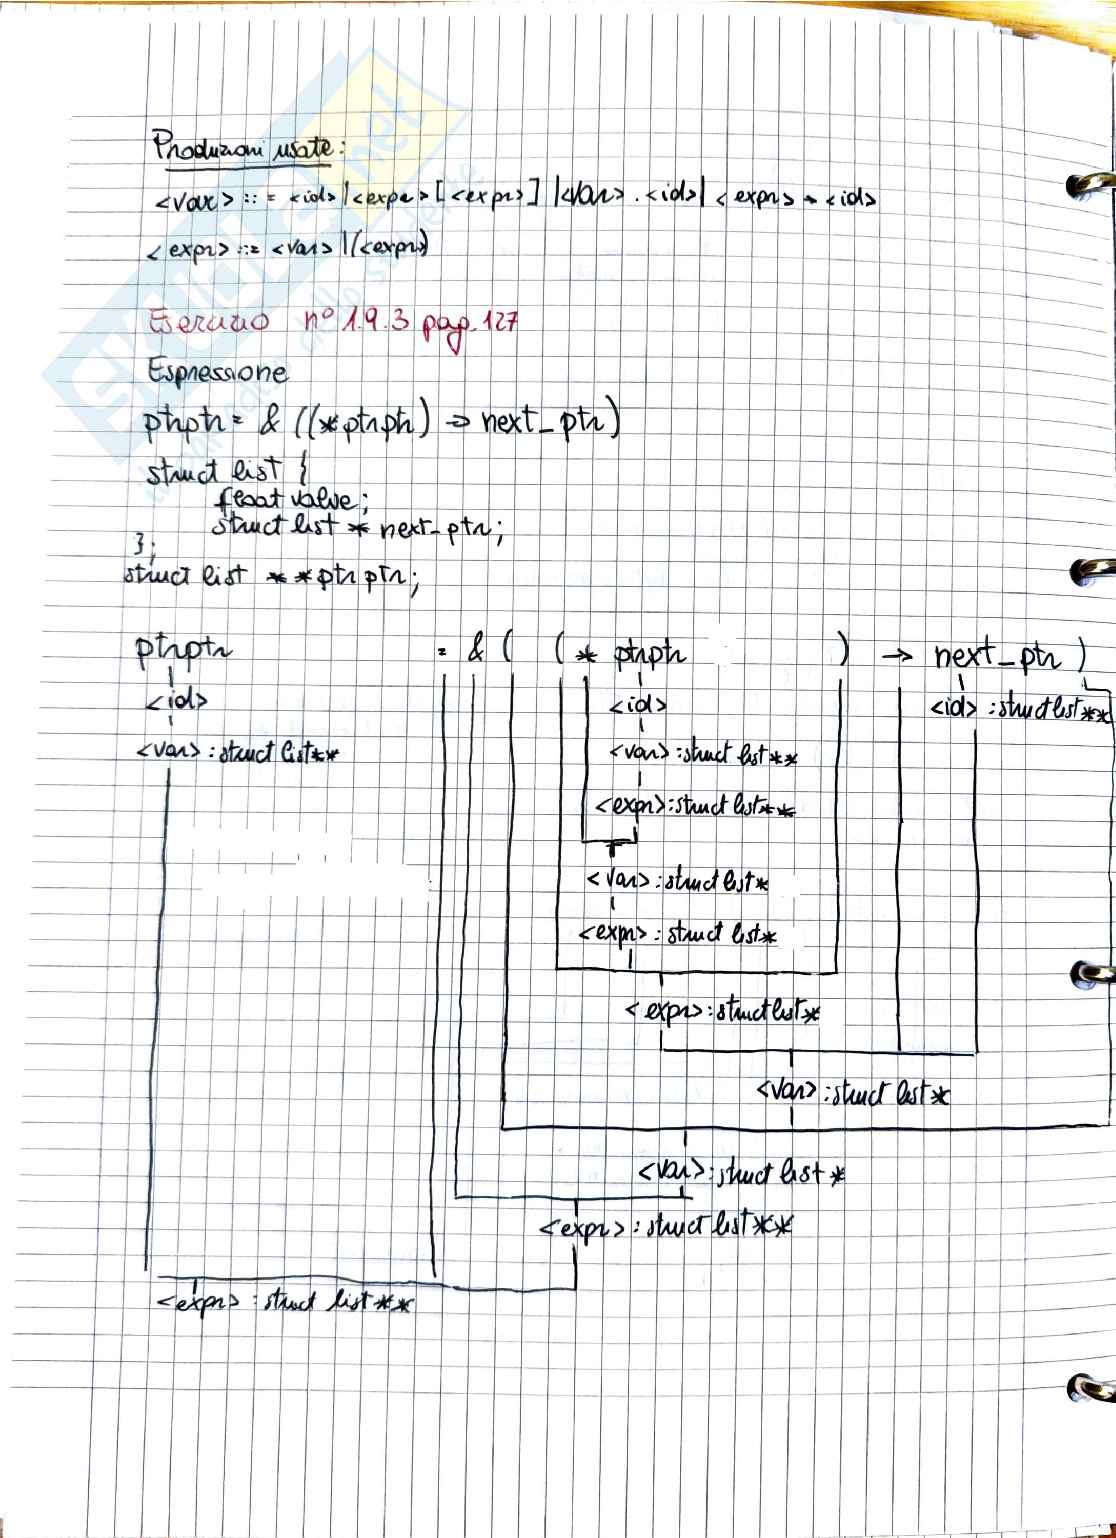 Produzioni usate:
<var> ::= <id> | <expr> [<expr>] | <var> . <id> | <expr> → <id>
<expr> ::= <var> | (<expr>)
Esercizio n° 1.9.3 pag. 127
Espressione
ptrptr = & ((*ptrptr) → next_ptr)
struct list {
float value;
struct list * next_ptr;
};
struct list **ptrptr;
ptrptr = & ( ( * ptrptr ) → next_ptr )
<id> <id> <id> : struct list**
<var> : struct list** <var> : struct list**
<expr> : struct list**
<var> : struct list*
<expr> : struct list*
<expr> : struct list*
<var> : struct list*
<var> : struct list*
<expr> : struct list**
<expr> : struct list**